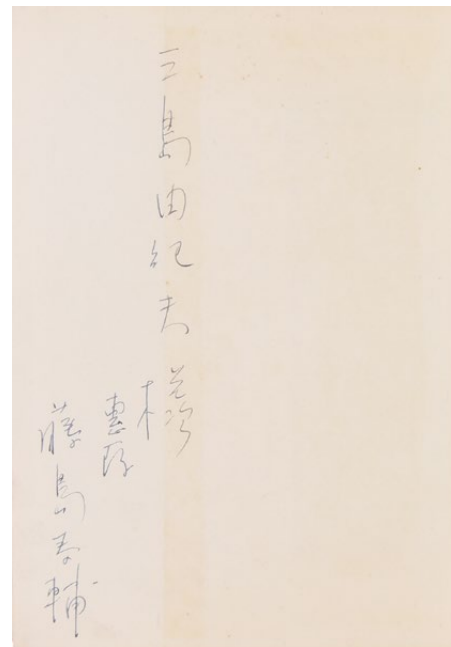 三島由紀夫様
惠存
藤島泰輔